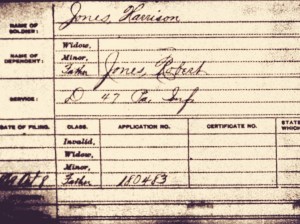 NAME OF SOLDIER: Jones, Harrison
NAME OF DEPENDENT:
Widow,
Minor,
Father Jones, Robert
SERVICE: D 47 Pa. Inf.
DATE OF FILING. CLASS. APPLICATION NO. CERTIFICATE NO. STATE
Invalid,
Widow,
Minor,
Father 180483